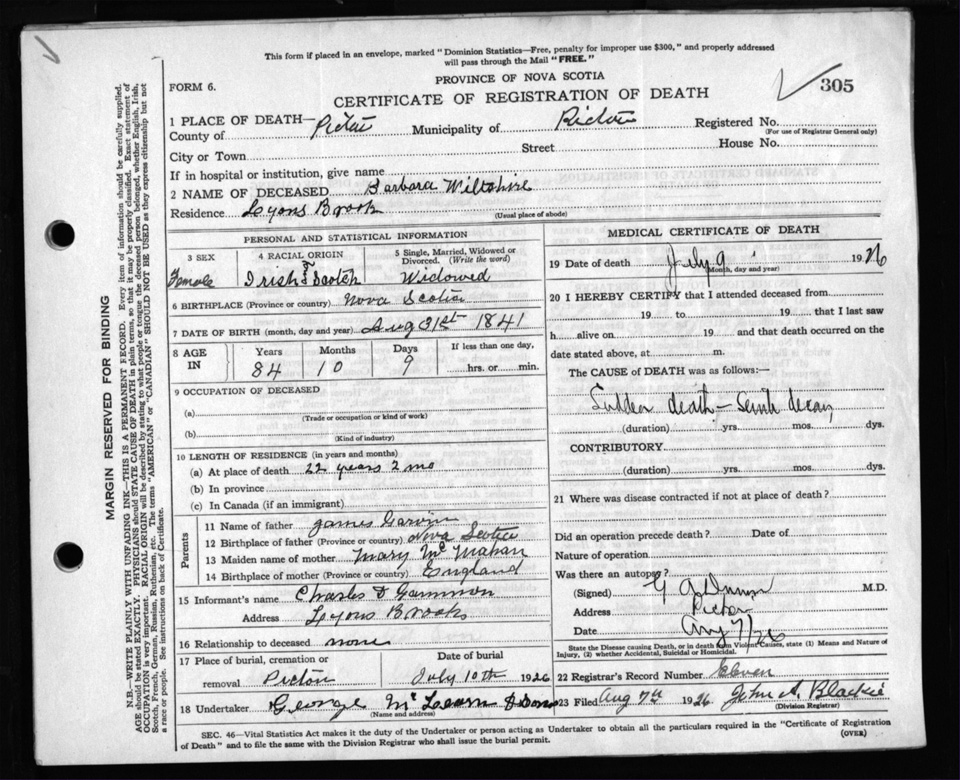 This form if placed in an envelope, marked "Dominion Statistics—Free, penalty for improper use $300," and properly addressed
will pass through the Mail "FREE."
PROVINCE OF NOVA SCOTIA
FORM 6.
CERTIFICATE OF REGISTRATION OF DEATH
305
1 PLACE OF DEATH—
County of Pictou Municipality of Pictou Registered No.
(For use of Registrar General only)
City or Town Street House No.
If in hospital or institution, give name
2 NAME OF DECEASED Barbara Wiltshire
Residence Lyons Brook
(Usual place of abode)
PERSONAL AND STATISTICAL INFORMATION
3 SEX 4 RACIAL ORIGIN 5 Single, Married, Widowed or
Divorced. (Write the word)
Female Irish & Scotch Widowed
6 BIRTHPLACE (Province or country) Nova Scotia
7 DATE OF BIRTH (month, day and year) Aug 31st 1841
8 AGE IN Years Months Days If less than one day,
84 10 9 hrs. or min.
9 OCCUPATION OF DECEASED
(a)
(Trade or occupation or kind of work)
(b)
(Kind of industry)
10 LENGTH OF RESIDENCE (in years and months)
(a) At place of death 22 years 2 mo
(b) In province
(c) In Canada (if an immigrant)
Parents
11 Name of father James Garvin
12 Birthplace of father (Province or country) Nova Scotia
13 Maiden name of mother Mary McMahan
14 Birthplace of mother (Province or country) England
15 Informant's name Charles F Gammon
Address Lyons Brook
16 Relationship to deceased none
17 Place of burial, cremation or Date of burial
removal Pictou July 10th 1926
18 Undertaker George McLearn & Sons
(Name and address)
MEDICAL CERTIFICATE OF DEATH
19 Date of death July 9 1926
Month, day and year)
20 I HEREBY CERTIFY that I attended deceased from
19 to 19 that I last saw
h alive on 19 and that death occurred on the
date stated above, at m.
The CAUSE of DEATH was as follows:—
Sudden death - Senile decay
(duration) yrs. mos. dys.
CONTRIBUTORY
(duration) yrs. mos. dys.
21 Where was disease contracted if not at place of death?
Did an operation precede death? Date of
Nature of operation
Was there an autopsy?
(Signed) G A Dunn M.D.
Address Pictou
Date Aug 7/26
State the Disease causing Death, or in death from Violent Causes, state (1) Means and Nature of
Injury, (2) whether Accidental, Suicidal or Homicidal.
22 Registrar's Record Number Eleven
23 Filed Aug 7th 1926 John A. Blackie
(Division Registrar)
SEC. 46—Vital Statistics Act makes it the duty of the Undertaker or person acting as Undertaker to obtain all the particulars required in the "Certificate of Registration
of Death" and to file the same with the Division Registrar who shall issue the burial permit.
(OVER)
MARGIN RESERVED FOR BINDING
N.B.—WRITE PLAINLY WITH UNFADING INK—THIS IS A PERMANENT RECORD. Every item of information should be carefully supplied.
AGE should be stated EXACTLY. PHYSICIANS should STATE CAUSE OF DEATH in plain terms, so that it may be properly classified. Exact statement of
OCCUPATION is very important. RACIAL ORIGIN will be described by stating to what people or tongue the deceased person belonged, whether English, Irish,
Scotch, French, German, Russian, Ruthenian, etc. The terms "AMERICAN" or "CANADIAN" SHOULD NOT BE USED as they express citizenship but not
a race or people. See instructions on back of Certificate.